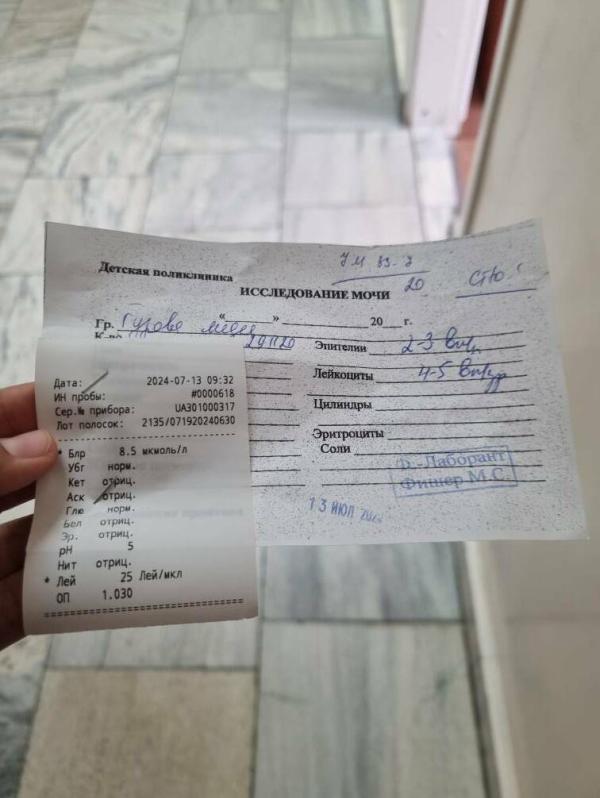 20
Детская поликлиника
ИССЛЕДОВАНИЕ МОЧИ
Гр.
«______» ______ 20___ г.
Эпителии 2-3
Лейкоциты 4-5
Цилиндры
Эритроциты
Соли
Ф.-Лаборант
Фишер М.С.
13 ИЮЛ
Дата: 2024-07-13 09:32
ИН пробы: #0000618
Сер.№ прибора: UA301000317
Лот полосок: 2135/071920240630
* Блр 8.5 мкмоль/л
Убг норм.
Кет отриц.
Аск отриц.
Глю норм.
Бел отриц.
Эр. отриц.
pH 5
Нит отриц.
* Лей 25 Лей/мкл
ОП 1.030